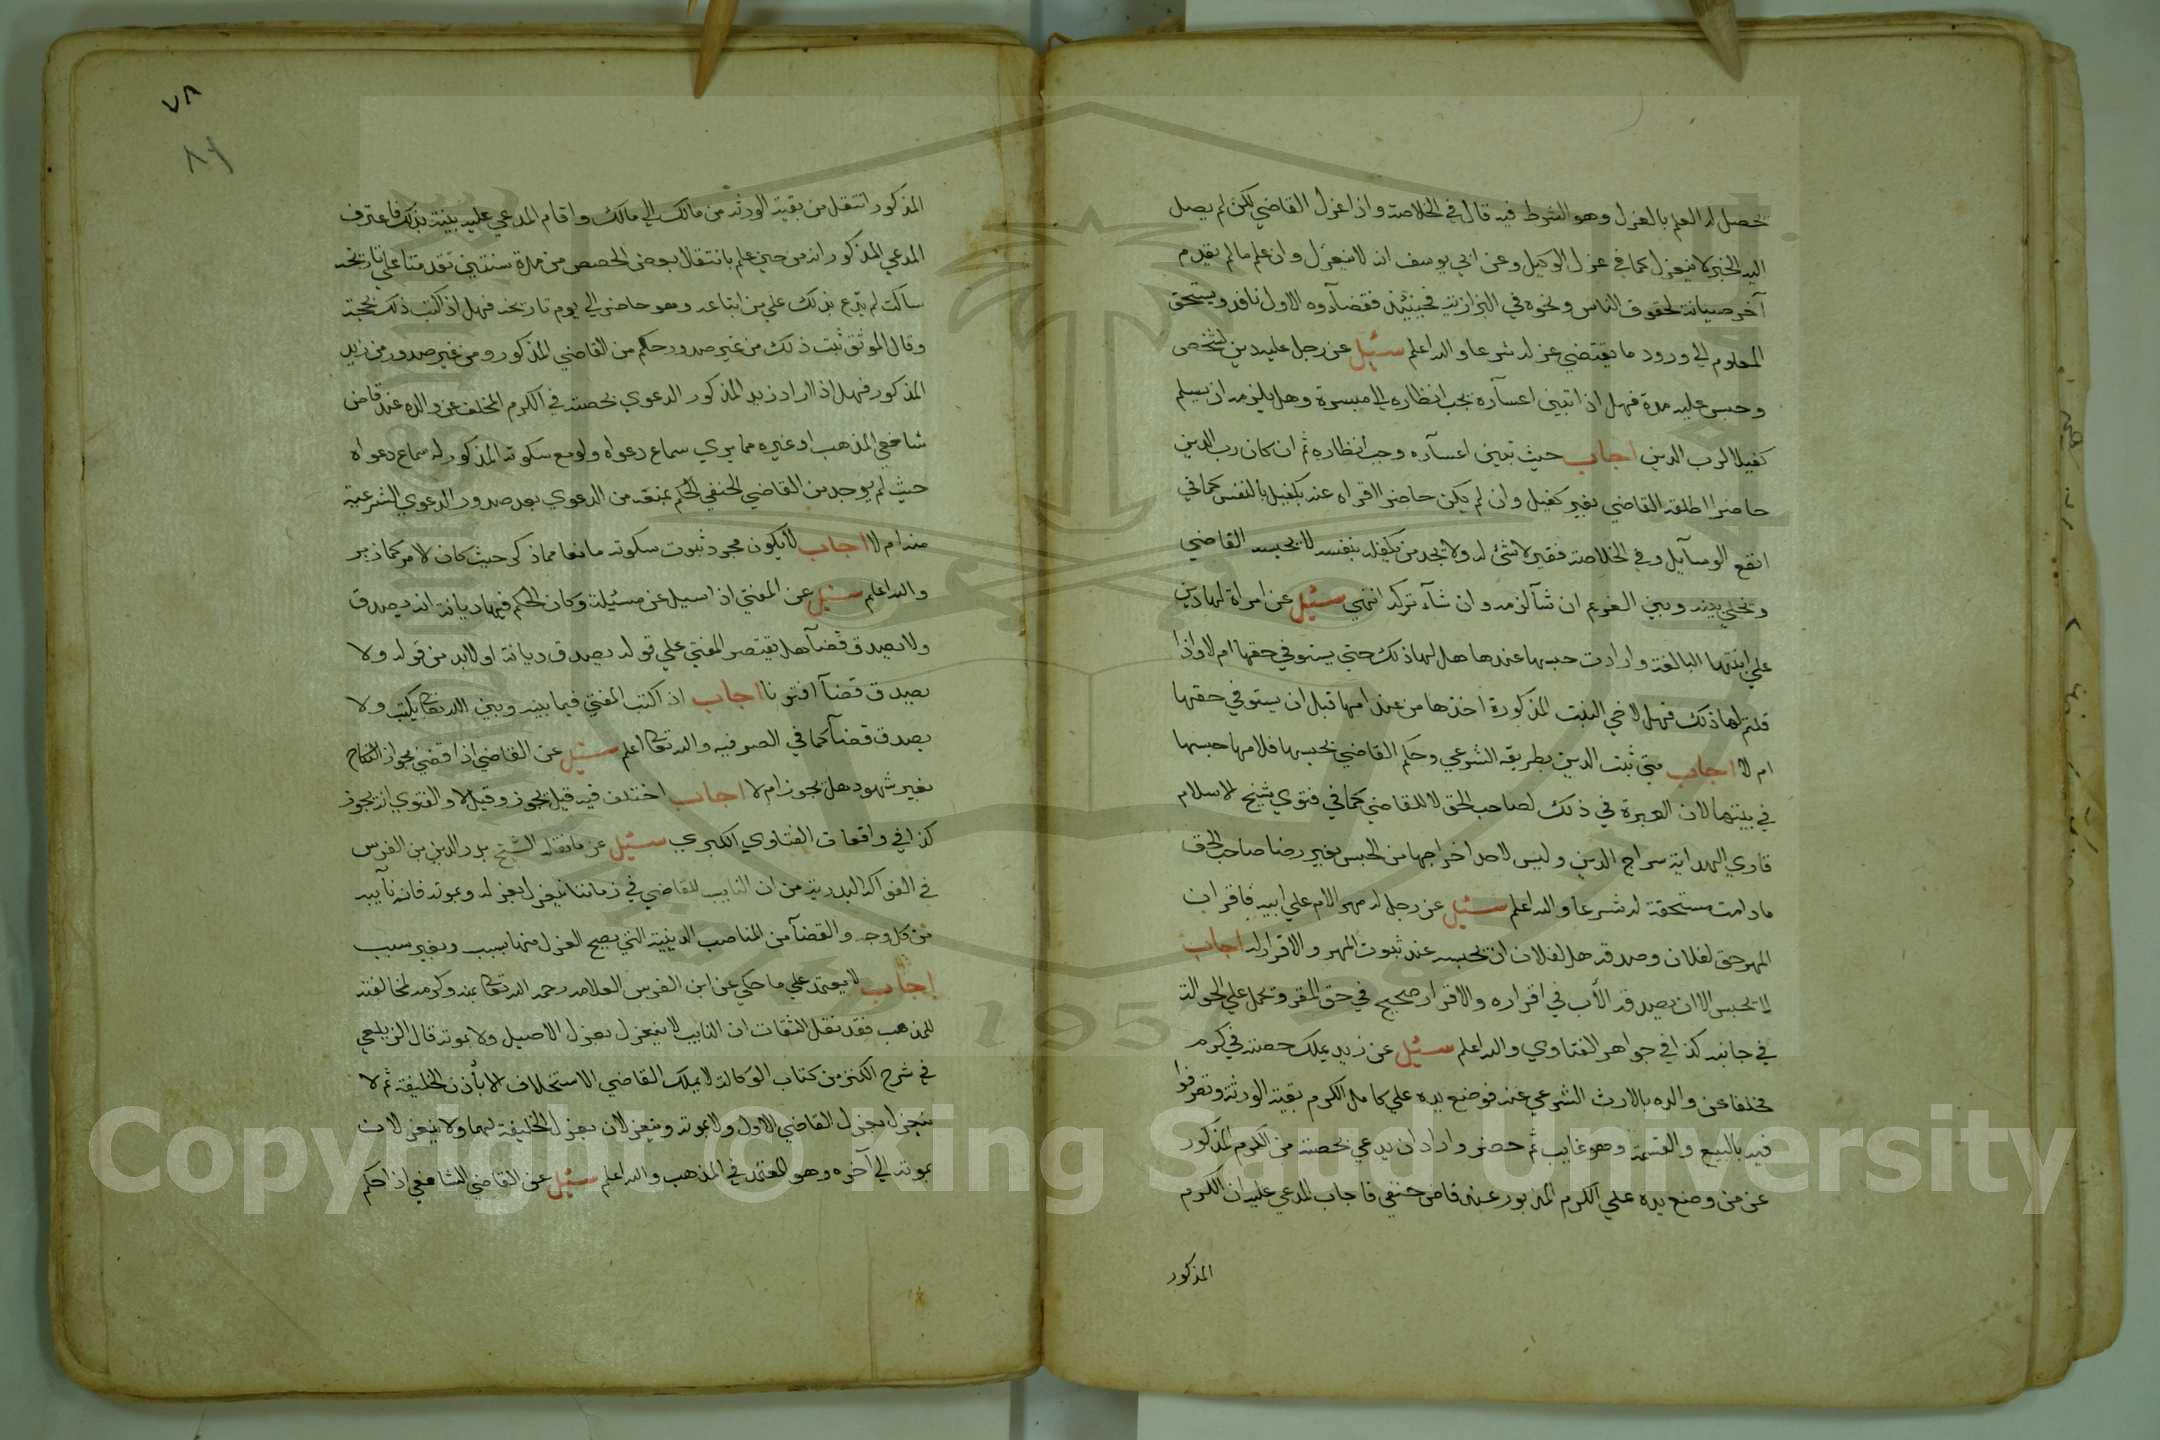 حصل له العلم بالعزل وهو الشرط فيه قال في الخلاصة واذا عزل القاضي لكن لم يصل
اليه الخبر لا ينعزل كما في عزل الوكيل وعن ابي يوسف انه لا ينعزل وان علم مالم يقدم
آخر صيانة لحقوق الناس ونحوه في البزازية فحينئذ فقضآؤه الاول نافذ ويستحق
المعلوم الي ورود ما يقتضي عزله شرعا والله اعلم سئيل عن رجل عليه دين لشخص
وحبس عليه مدة فهل اذا تبين اعسآره يجب انظاره الي ميسرة وهل يلزمه ان يسلم
كفيلا لرب الدين اجاب حيث تبين اعسآره وجب انظاره ثم ان كان رب الدين
حاضرا اطلقه القاضي بغير كفيل وان لم يكن حاضرا عنه بكفيل بالنفس كما في
انفع الوسآيل وفي الخلاصة فقير لا شئ له ولا يجد من يكفله بنفسه لا يحبسه القاضي
ويخلي بينه وبين الغريم ان شآ لزمه وان شآء تركه انتهي سئيل عن امراة لها دين
علي ابنتها البالغة وارادت حبسها عندها هل لها ذلك حتي يستوفي حقها ام لا واذا
قلتم لها ذلك فهل لاخي البنت المذكورة اخذها من عند امها قبل ان يستوفي حقها
ام لا اجاب متي ثبت الدين بطريقه الشرعي وحكم القاضي بحبسها فلامها حبسها
في بيتها لان العبرة في ذلك لصاحب الحق لا للقاضي كما في فتوي شيخ الاسلام
قاري الهداية سراج الدين وليس لاحد اخراجها من الحبس بغير رضا صاحب الحق
ما دامت مستحقة له شرعا والله اعلم سئيل عن رجل له مهر الام علي ابيه فاقر ان
المهر حق لفلان وصدقه هل لفلان ان يحبسه عند ثبوت المهر والاقرار له اجاب
لا يحبس الا ان يصدقه الأب في اقراره والاقرار صحيح في حق المقر وتحمل علي الحوالة
في جانبه كذا في جواهر الفتاوي والله اعلم سئيل عن زيد يملك حصة في كرم
مخلفا عن والده بالارث الشرعي عنه فوضع يده علي كامل الكرم بقية الورثة وتصرفوا
فيه بالبيع والقسمة وهو غايب ثم حضر واراد ان يدعي بحصته من الكرم المذكور
عن من وضع يده علي الكرم المزبور عند قاض حنفي فاجاب المدعي عليه ان الكرم
المذكور
٧٨
المذكور انتقل من بقية الورثة من مالك الي مالك واقام المدعي عليه بينة بذلك فاعترف
المدعي المذكور انه من حين علم بانتقال بعض الحصص من مدة سنتين تقدمتا علي تاريخه
ساكت لم يدع بذلك علي من ابتاعه وهو حاضر الي يوم تاريخه فهل اذا كتب ذلك بحجة
وقال الموثق ثبت ذلك من غير صدور حكم من القاضي المذكور ومن غير صدور من زيد
المذكور فهل اذا اراد زيد المذكور الدعوي بحصته في الكرم المخلف عن والده عند قاض
شافعي المذهب او غيره مما يري سماع دعواه ولو مع سكوته المذكور له سماع دعواه
حيث لم يوجد من القاضي الحنفي الحكم بمنعه من الدعوي بعد صدور الدعوي الشرعية
منه ام لا اجاب لا يكون مجرد ثبوت سكوته مانعا مما ذكر حيث كان الامر كما ذبر
والله اعلم سئيل عن المفتي اذا سيل عن مسئيلة وكان الحكم فيها ديانة انه يصدق
ولا يصدق قضآ هل يقتصر المفتي علي قوله يصدق ديانة او لابد من قوله ولا
يصدق قضآ افتونا اجاب اذا كتب المفتي فيما بينه وبين الله تعالى يكتب ولا
يصدق قضآ كما في الصوفيه والله تعالى اعلم سئيل عن القاضي اذا قضي بجواز النكاح
بغير شهود هل يجوز ام لا اجاب اختلف فيه قيل يجوز وقيل لا والفتوي انه يجوز
كذا في واقعات الفتاوي الكبري سئيل عن ما نقله الشيخ بدر الدين بن الغرس
في الفواكه البدرية من ان النايب للقاضي في زماننا ينعزل بعزله وبموته فانه نآيبه
من كل وجه والقضآ من المناصب الدينية التي يصح العزل منها بسبب وبغير سبب
اجاب لا يعتمد علي ما حكي عن ابن الغرس العلامه رحمه الله تعالى بمنه وكرمه لمخالفته
للمذهب فقد نقل الثقات ان النايب لا ينعزل بعزل الاصيل ولا بموته قال الزيلعي
في شرح الكنز من كتاب الوكالة لا يملك القاضي الاستخلاف الا بأذن الخليفة ثم لا
ينعزل بعزل القاضي الاول ولا بموته وينعزلان بعزل الخليفة لهما ولا ينعزلان
بموته الي آخره وهو المعتمد في المذهب والله اعلم سئيل عن القاضي الشافعي اذا حكم
Copyright © King Saud University
195